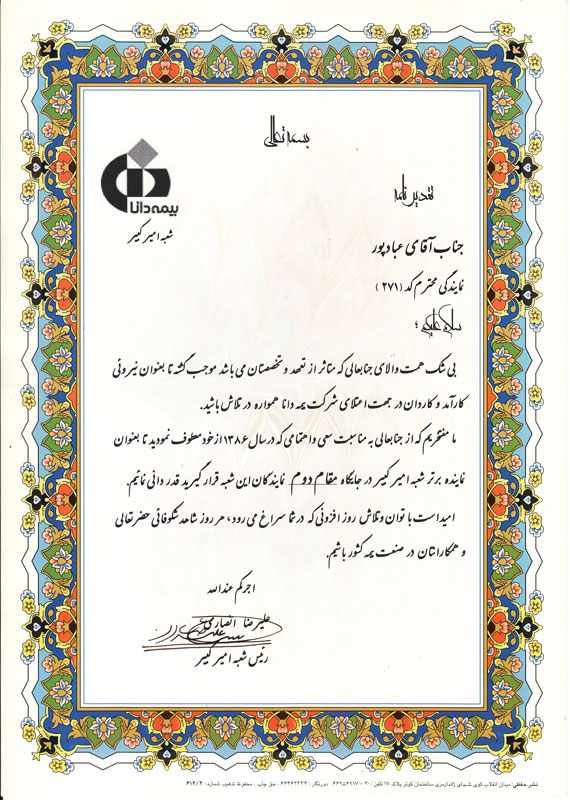 بسمه تعالی
بیمه دانا
شعبه امیرکبیر
تقدیرنامه
جناب آقای عبادپور
نمایندگی محترم کد (۲۷۱)
سلام علیکم ؛
بی شک همت والای جنابعالی که متاثر از تعهد و تخصصتان می باشد موجب گشته تا بعنوان نیروئی
کارآمد و کاردان در جهت اعتلای شرکت بیمه دانا همواره در تلاش باشید.
ما مفتخریم که از جنابعالی به مناسبت سعی و اهتمامی که در سال ۱۳۸۶ از خود معطوف نمودید تا بعنوان
نماینده برتر شعبه امیرکبیر در جایگاه مقام دوم نمایندگان این شعبه قرار گیرید قدردانی نمائیم.
امید است با توان و تلاش روز افزونی که در شما سراغ می رود، هر روز شاهد شکوفائی حضرتعالی
و همکارانتان در صنعت بیمه کشور باشیم.
اجرکم عندالله
علیرضا انصاری
رئیس شعبه امیرکبیر
نشر حفظی: میدان انقلاب کوی شهدای ژاندارمری ساختمان کوثر پلاک ۱۷ تلفن : ۲۰ - ۶۶۹۵۶۹۱۷ دورنگار : ۶۶۴۶۲۲۳۳ - حق چاپ - محفوظ تذهیب شماره : ۶۱۴/۲